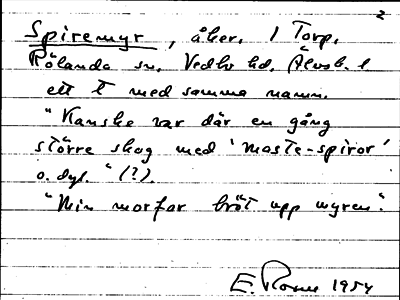 2
Spiremyr, åker, 1 Torp,
Rölanda sn. Vedbo hd, Älvsb. l
ett t med samma namn.
"Kanske var där en gång
större skog med 'maste-spiror'
o. dyl." (?).
"Min morfar bröt upp myren".
E. 1954